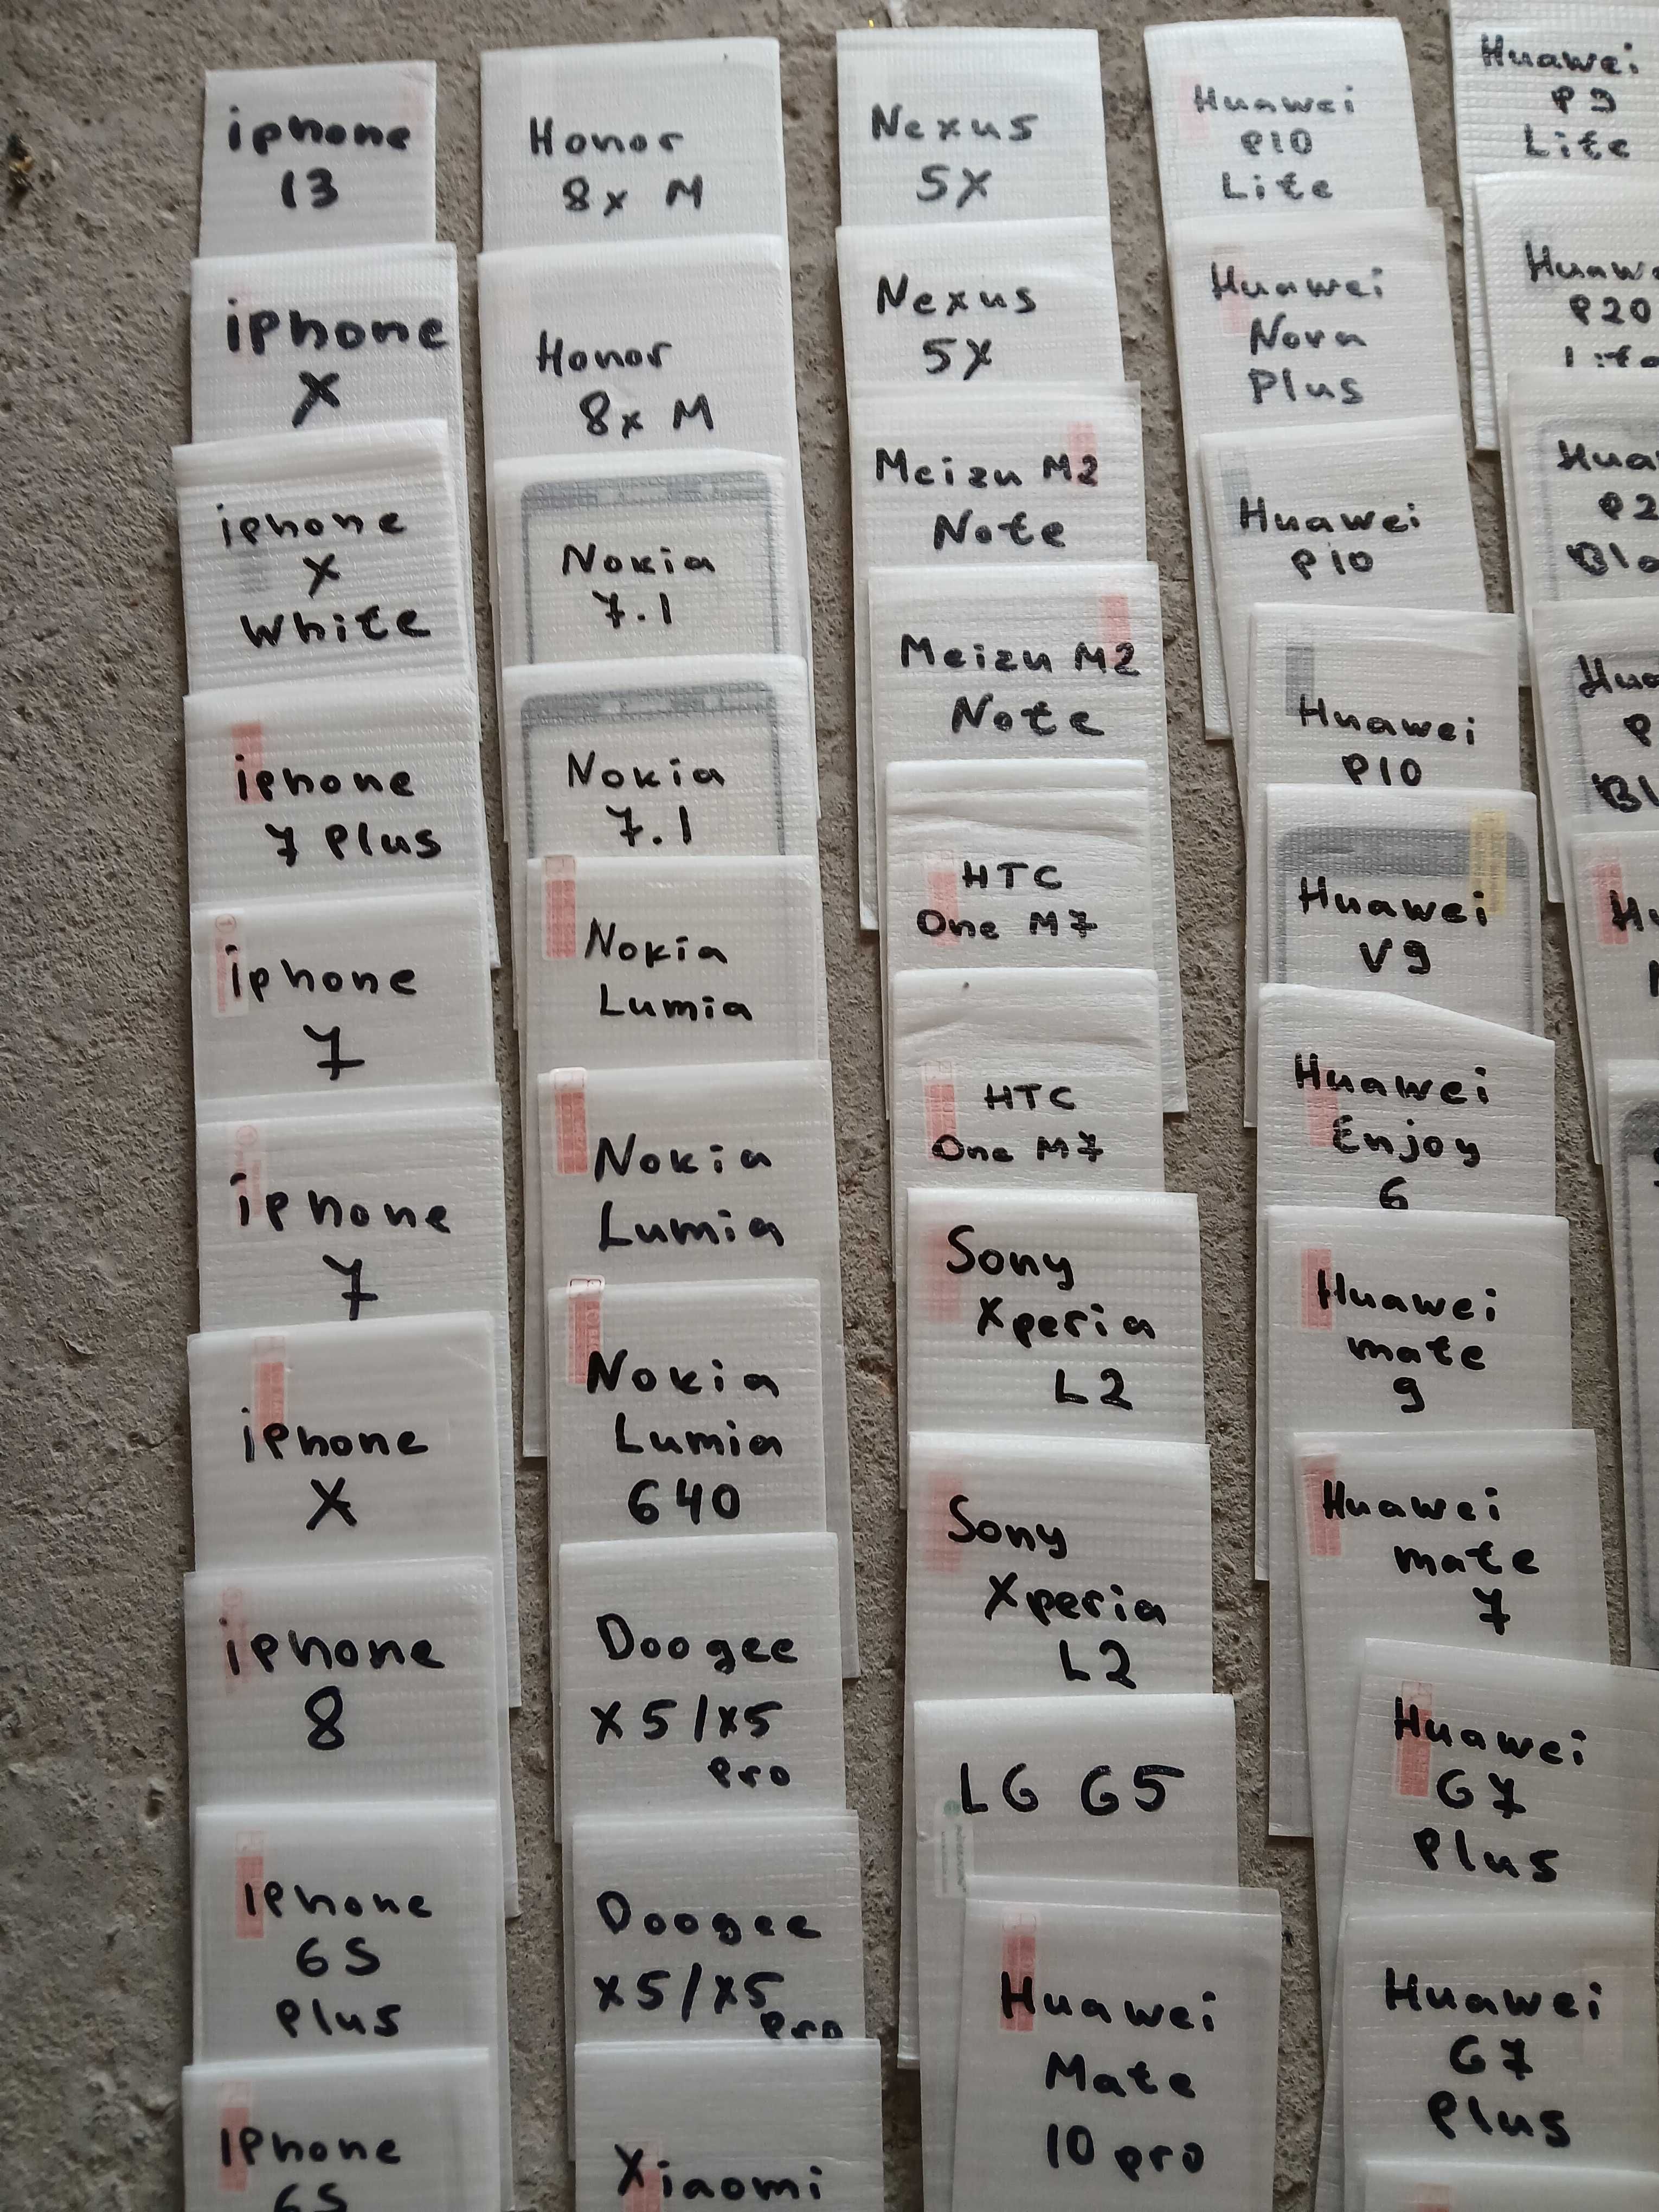 iphone
13
iphone
X
iphone
X
White
iphone
7 Plus
iphone
7
iphone
7
iphone
X
iphone
8
iphone
6S
Plus
iphone
6S
Honor
8x M
Honor
8x M
Nokia
7.1
Nokia
7.1
Nokia
Lumia
Nokia
Lumia
Nokia
Lumia
640
Doogee
X5/X5
Pro
Doogee
X5/X5
Pro
Xiaomi
Nexus
5X
Nexus
5X
Meizu M2
Note
Meizu M2
Note
HTC
One M7
HTC
One M7
Sony
Xperia
L2
Sony
Xperia
L2
LG G5
Huawei
Mate
10 pro
Huawei
P10
Lite
Huawei
Nova
Plus
Huawei
P10
Huawei
P10
Huawei
V9
Huawei
Enjoy
6
Huawei
mate
9
Huawei
mate
7
Huawei
G7
Plus
Huawei
G7
Plus
Huawei
P9
Lite
Huaw
P20
Lite
Hua
P2
Bla
Hua
P
Bl
Hu